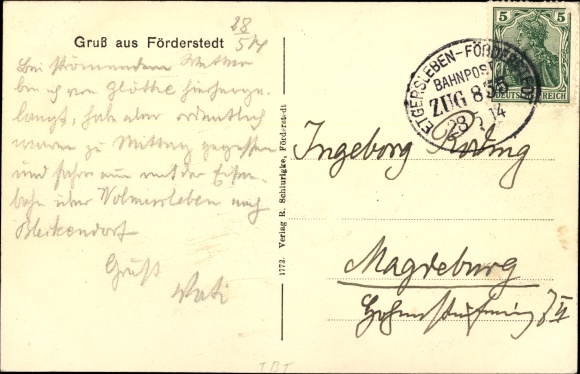 Gruß aus Förderstedt
28
5 14
Bei strömendem Wetter
bin ich von Glöthe hierherge-
langt, habe aber ordentlich
warm zu Mittag gegessen
und fahre nun mit der Eisen-
bahn über Wolmirsleben nach
Bleckendorf
Gruß
Vati
1772. Verlag R. Schlurigke, Förderstedt
5
DEUTSCHES REICH
ETGERSLEBEN-FÖRDERSTEDT
BAHNPOST
ZUG 835
28 5 14
Ingeborg
Magdeburg